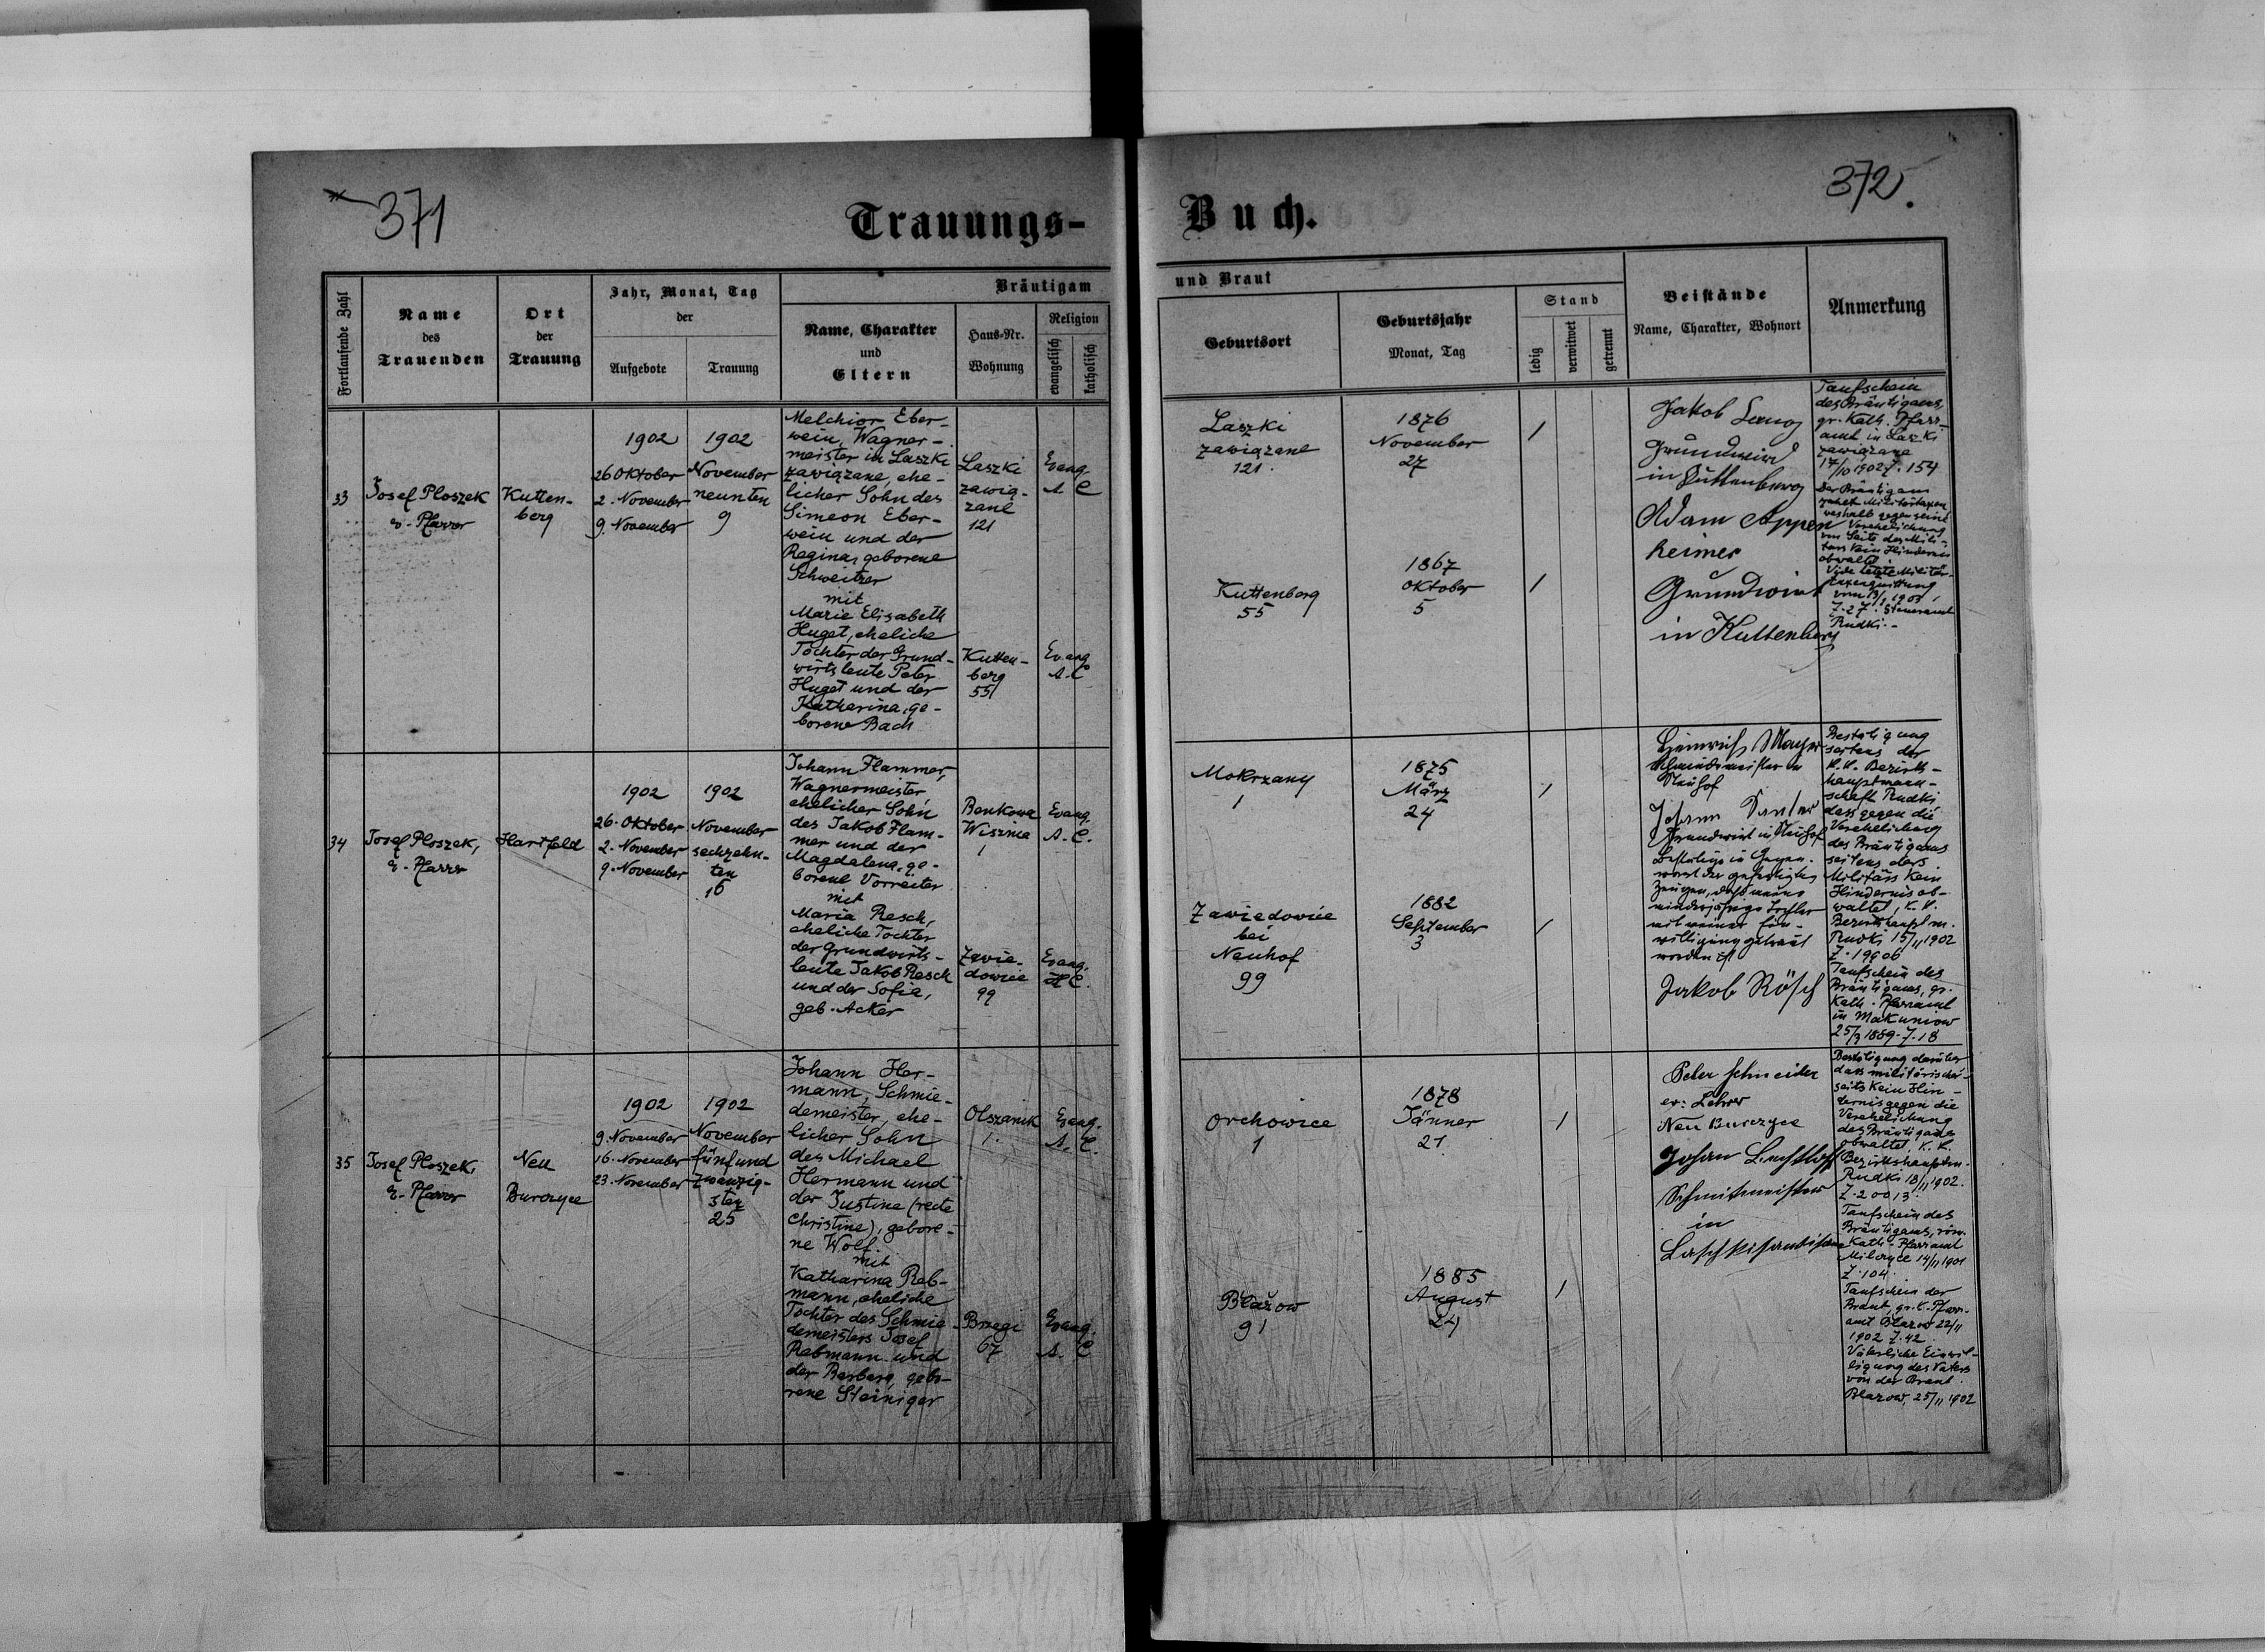 371
Trauungs-
Buch.
372.
Fortlaufende Zahl
Name
des
Trauenden
Ort
der
Trauung
Jahr, Monat, Tag
der
Aufgebote
Trauung
Bräutigam
Name, Charakter
und
Eltern
Haus-Nr.
Wohnung
Religion
evangelisch
katholisch
und Braut
Geburtsort
Geburtsjahr
Monat, Tag
Stand
ledig
verwitwet
getrennt
Beistände
Name, Charakter, Wohnort
Anmerkung
33
Josef Ploszek
e. Pfarrer
Kutten-
berg
1902
26 Oktober
2. November
9. November
1902
November
neunten
9
Melchior Eber-
wein, Wagner-
meister in Laszki
zawiązane, ehe-
licher Sohn des
Simeon Eber-
wein und der
Regina, geborene
Schweitzer
mit
Marie Elisabeth
Huget, eheliche
Tochter der Grund-
wirtsleute Peter
Huget und der
Katharina, ge-
borene Bach
Laszki
zawią-
zane
121
Evang.
A. C
Kutten-
berg
55
Evang.
A. C
Laszki
zawiązane
121.
1876
November
27
/
Kuttenberg
55
1867
Oktober
5
/
Jakob Lang
Grundwird
in Kuttenberg
Adam Appen
heimer
Grundwirt
in Kuttenberg
Taufschein
des Bräutigams,
gr. Kath. Pfarr-
amt in Laszki
zawiązane
17/10 1902 Z. 154
Der Bräutigam
zahlt Militärtaxen
weshalb gegen seine
Verehelichung
von Seite des Mili-
tärs kein Hindernis
obwaltet.
Vide letzte Militär-
taxenquittung
Z. 27. Steueramt
Rudki.-
34
Josef Ploszek,
e. Pfarrer
Hartfeld
1902
26. Oktober
2. November
9. November
1902
November
sechzehn-
ten
16
Johann Flammer,
Wagnermeister,
ehelicher Sohn
des Jakob Flam-
mer und der
Magdalena, ge-
borene Vorreiter
mit
Maria Resch,
eheliche Tochter
der Grundwirts-
leute Jakob Resch
und der Sofia,
geb. Acker
Bonkowa
Wisznia
1
Evang.
A. C.
Zawie-
dowice
99
Evang.
H C.
Mokrzany
1
1875
März
24
/
Zawiedowice
bei
Neuhof
99
1882
September
3
/
Heinrich Mayer
Schmiedmeister in
Neuhof
Johann
Grundwirt in Neuhof
Bestätige in Gegen-
wart der gefertigten
Zeugen, daß meine
minderjährige Tochter
mit meiner Ein-
willigung getraut
worden ist
Jakob Rösch
Bestätigung
seitens der
K.K. Bezirks-
hauptmann-
schaft Rudki
dass gegen die
Verehelichung
des Bräutigams
seitens des
Militärs kein
Hindernis ob-
waltet, K.K.
Bezirkshauptm.
Rudki 15/11 1902
Z. 19906
Taufschein des
Bräutigams, gr.
Kath. Pfarramt
in Makuniow
25/3 1889. Z. 18
35
Josef Ploszek,
e. Pfarrer
Neu
Burczyce
1902
9. November
16. November
23. November
1902
November
fünfund
zwanzig-
sten
25
Johann Her-
mann, Schmie-
demeister, ehe-
licher Sohn
des Michael
Hermann und
der Justine (recte
Christine), gebore-
ne Wolf.
mit
Katharina Reb-
mann, eheliche
Tochter des Schmie-
demeisters Josef
Rebmann und
der Barbara, gebo-
rene Steiniger
Olszanik
1.
Evang.
A. C.
Brzegi
67
Evang.
A. C
Orchowice
1
1878
Jänner
21.
/
Błażow
91
1885
August
24
/
Peter Schneider
ev. Lehrer
Neu Burczyce
Johan
Schmitmeister
in
Bestätigung darüber
dass militärischer-
seits kein Hin-
dernis gegen die
Verehelichung
des Bräutigams
obwaltet, K.K.
Bezirkshauptm.
Rudki 18/11 1902.
Z. 20013.
Taufschein des
Bräutigams, röm.
Kath. Pfarramt
Milczyce 14/11 1901
Z. 104.
Taufschein der
Braut, gr. K. Pfarr-
amt Blazow 22/11
1902 Z. 42.
Väterliche Einwil-
ligung des Vaters
von der Braut.
Blazow, 25/11 1902